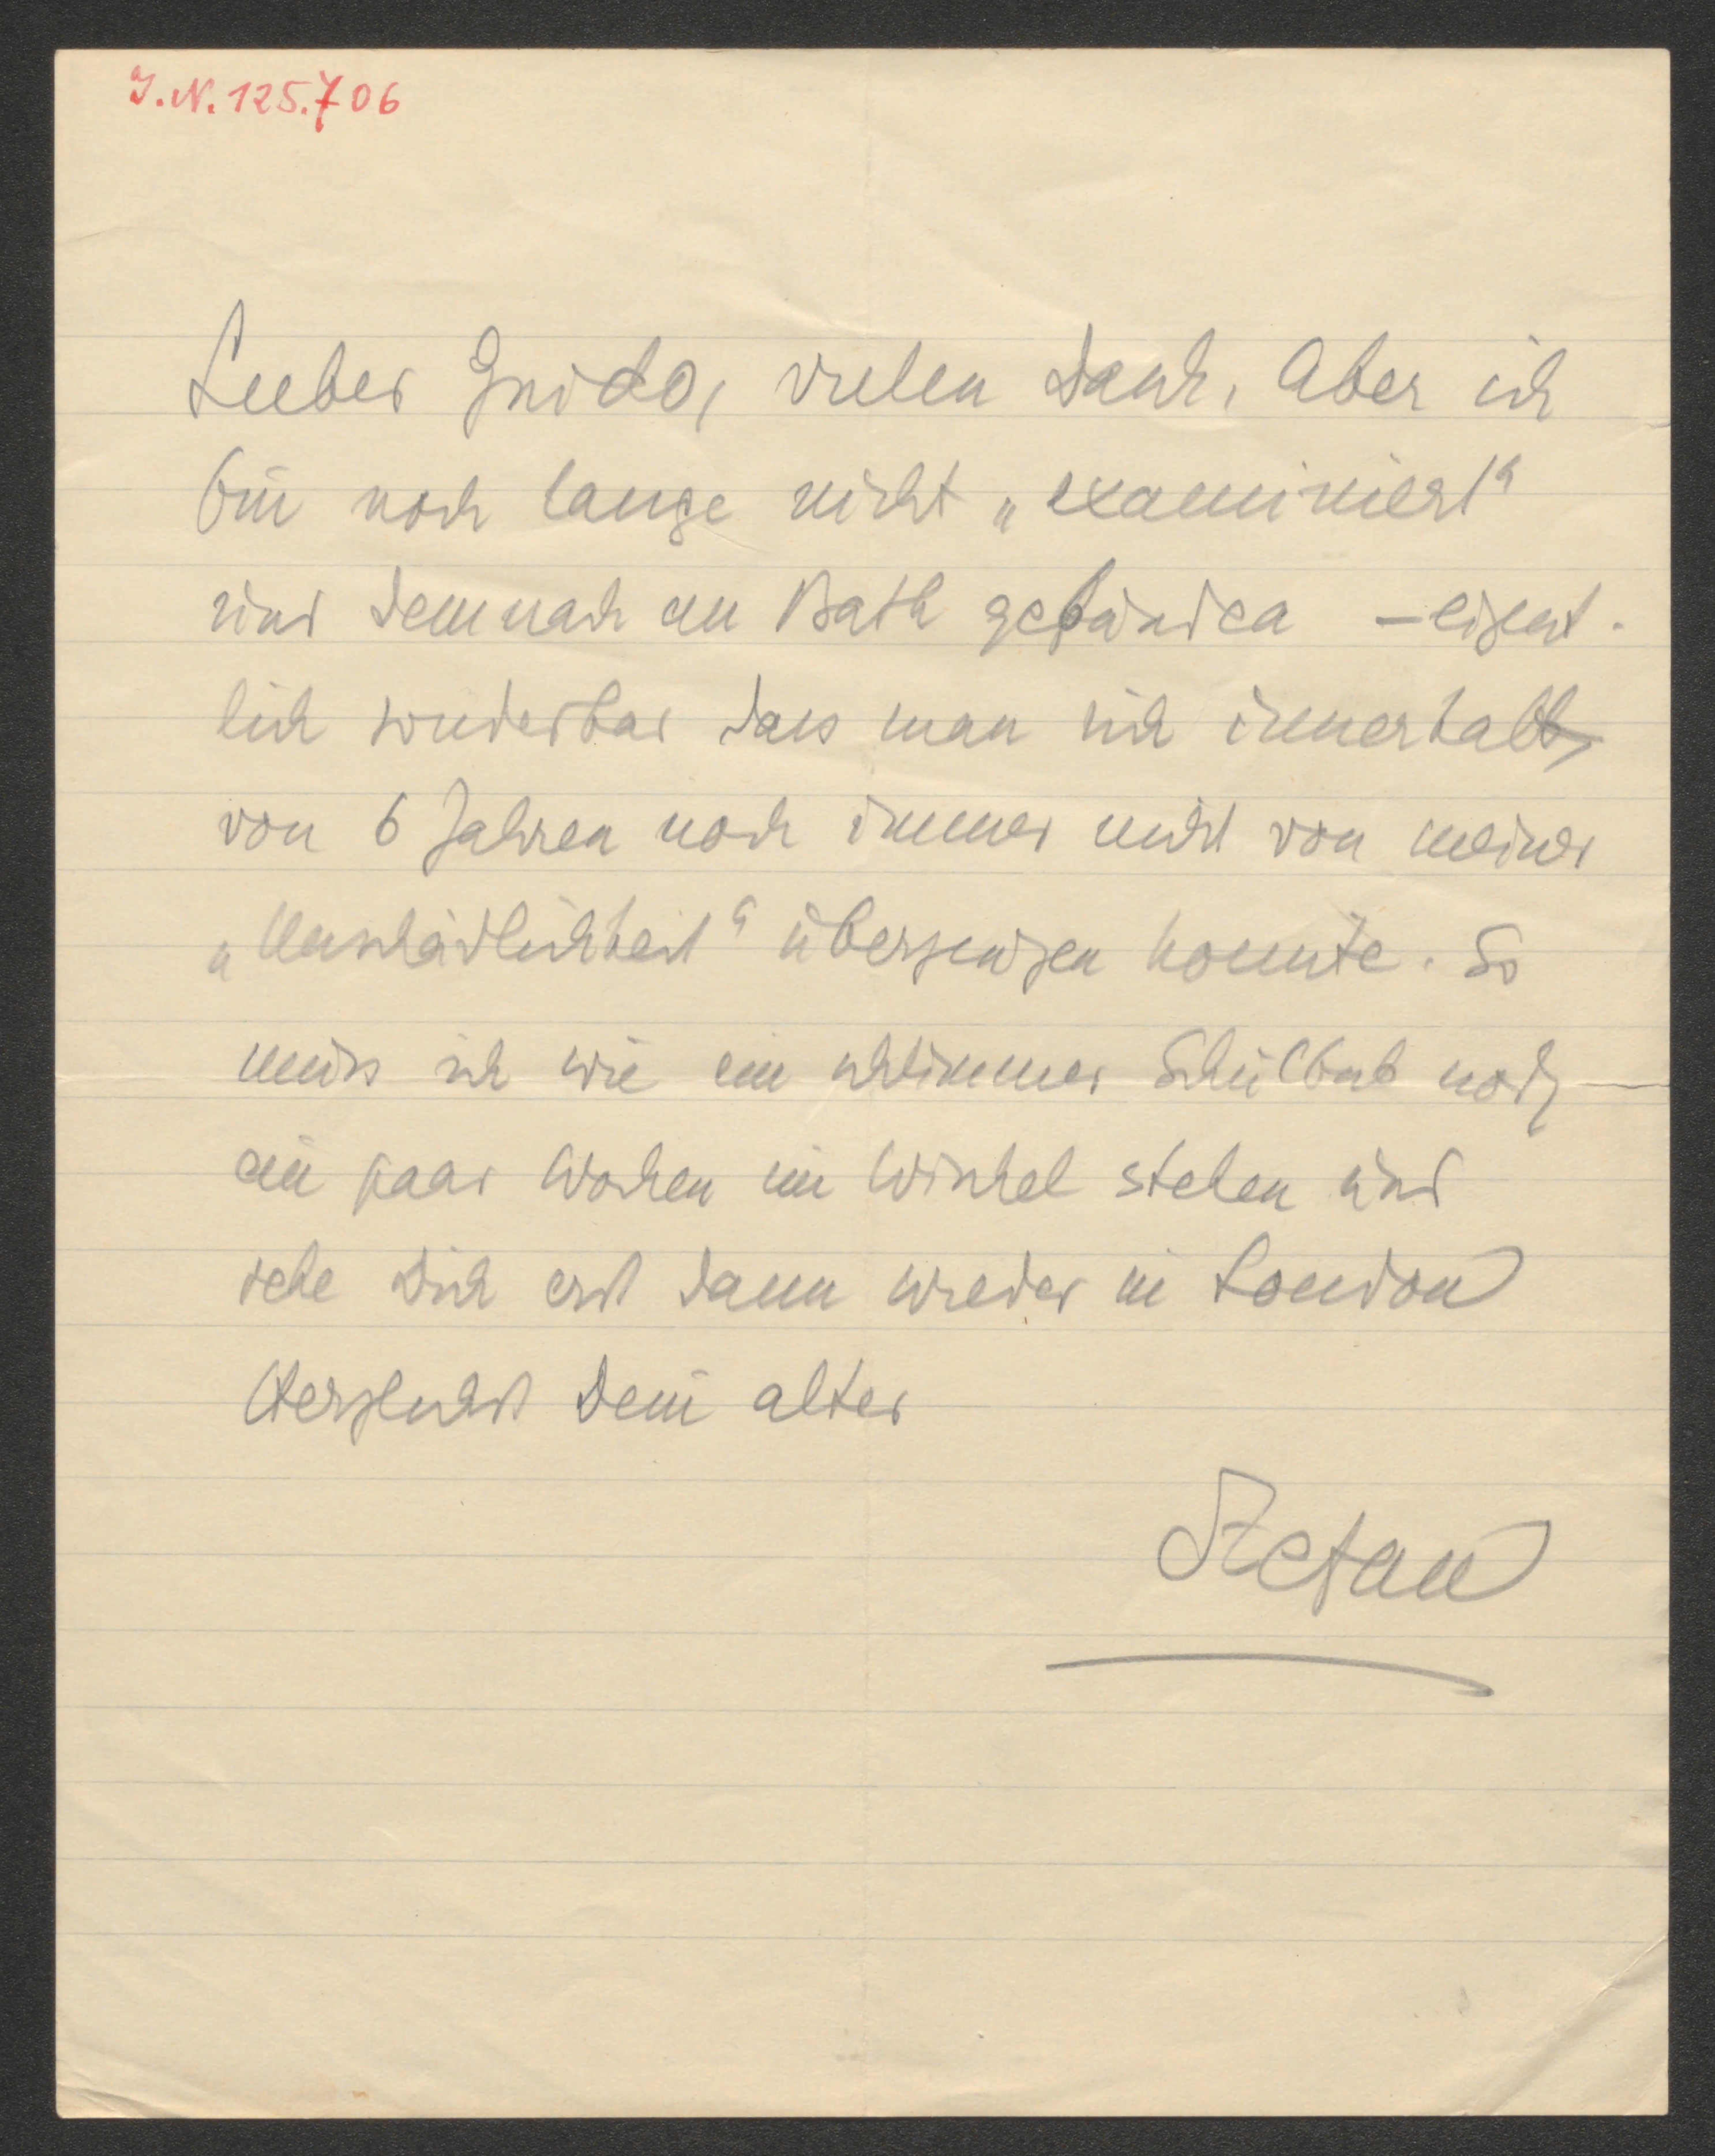 J.N. 125.706
Lieber Guido, vielen Dank. Aber ich
bin noch lange nicht „examiniert“
und demnach an Bath gebunden – eigent-
lich sonderbar dass man sich innerhalb
von 6 Jahren noch immer nicht von meiner
„Unschädlichkeit“ überzeugen konnte. So
muss ich wie ein schlimmer Schulbub noch
ein paar Wochen im Winkel stehen und
sehe Dich erst dann wieder in London
Herzlichst Dein alter
Stefan